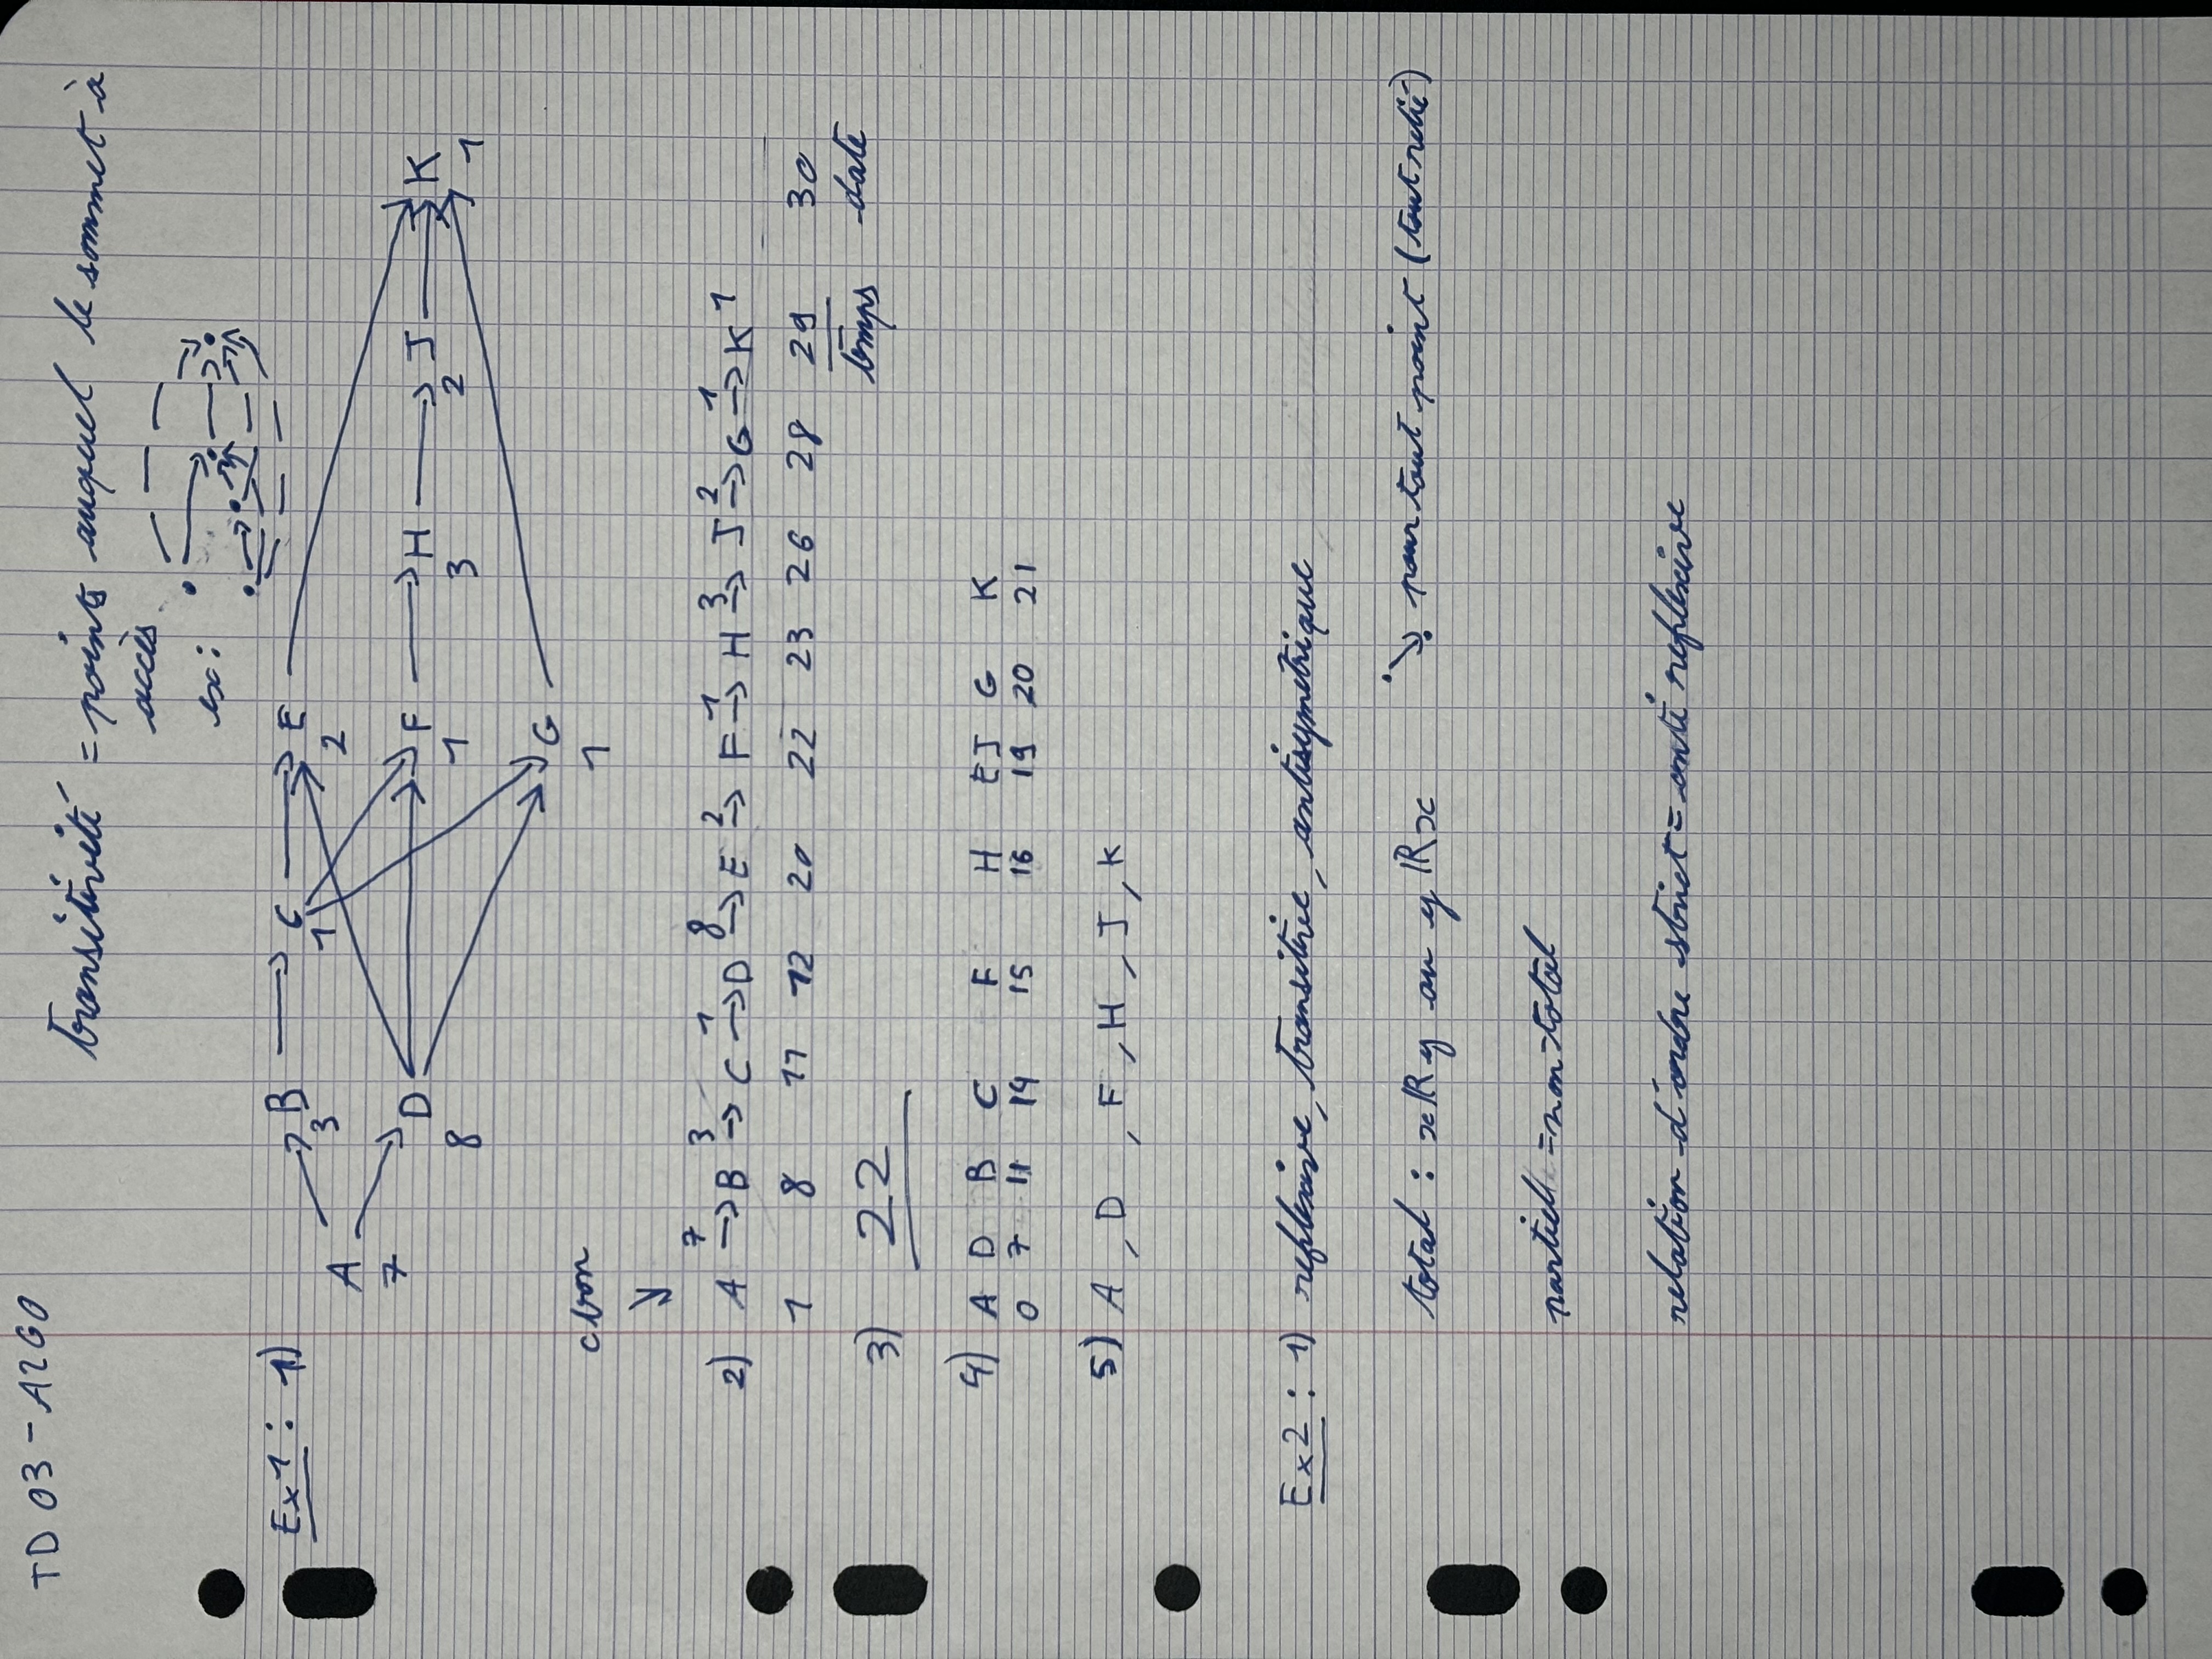 TD 03 - A2G0
transitivité = points auquel le sommet à
accès
ex :
Ex1 : 1)
B C E
3 1 2
A
7
D F H J K
8 1 3 2 1
G
1
c bon
7 3 1 8 2 1 3 2 1
2) A → B → C → D → E → F → H → J → G → K 1
1 8 11 12 20 22 23 26 28 29 30
temps date
3) 22
4) A D B C F H EJ G K
0 7 11 14 15 16 19 20 21
5) A , D , F , H , J , K
Ex2 : 1) reflexive, transitive, antisymetrique
total : xℝy ou yℝx pour tout point (tout relié)
partiel = non-total
relation d'ordre strict = anti reflexive